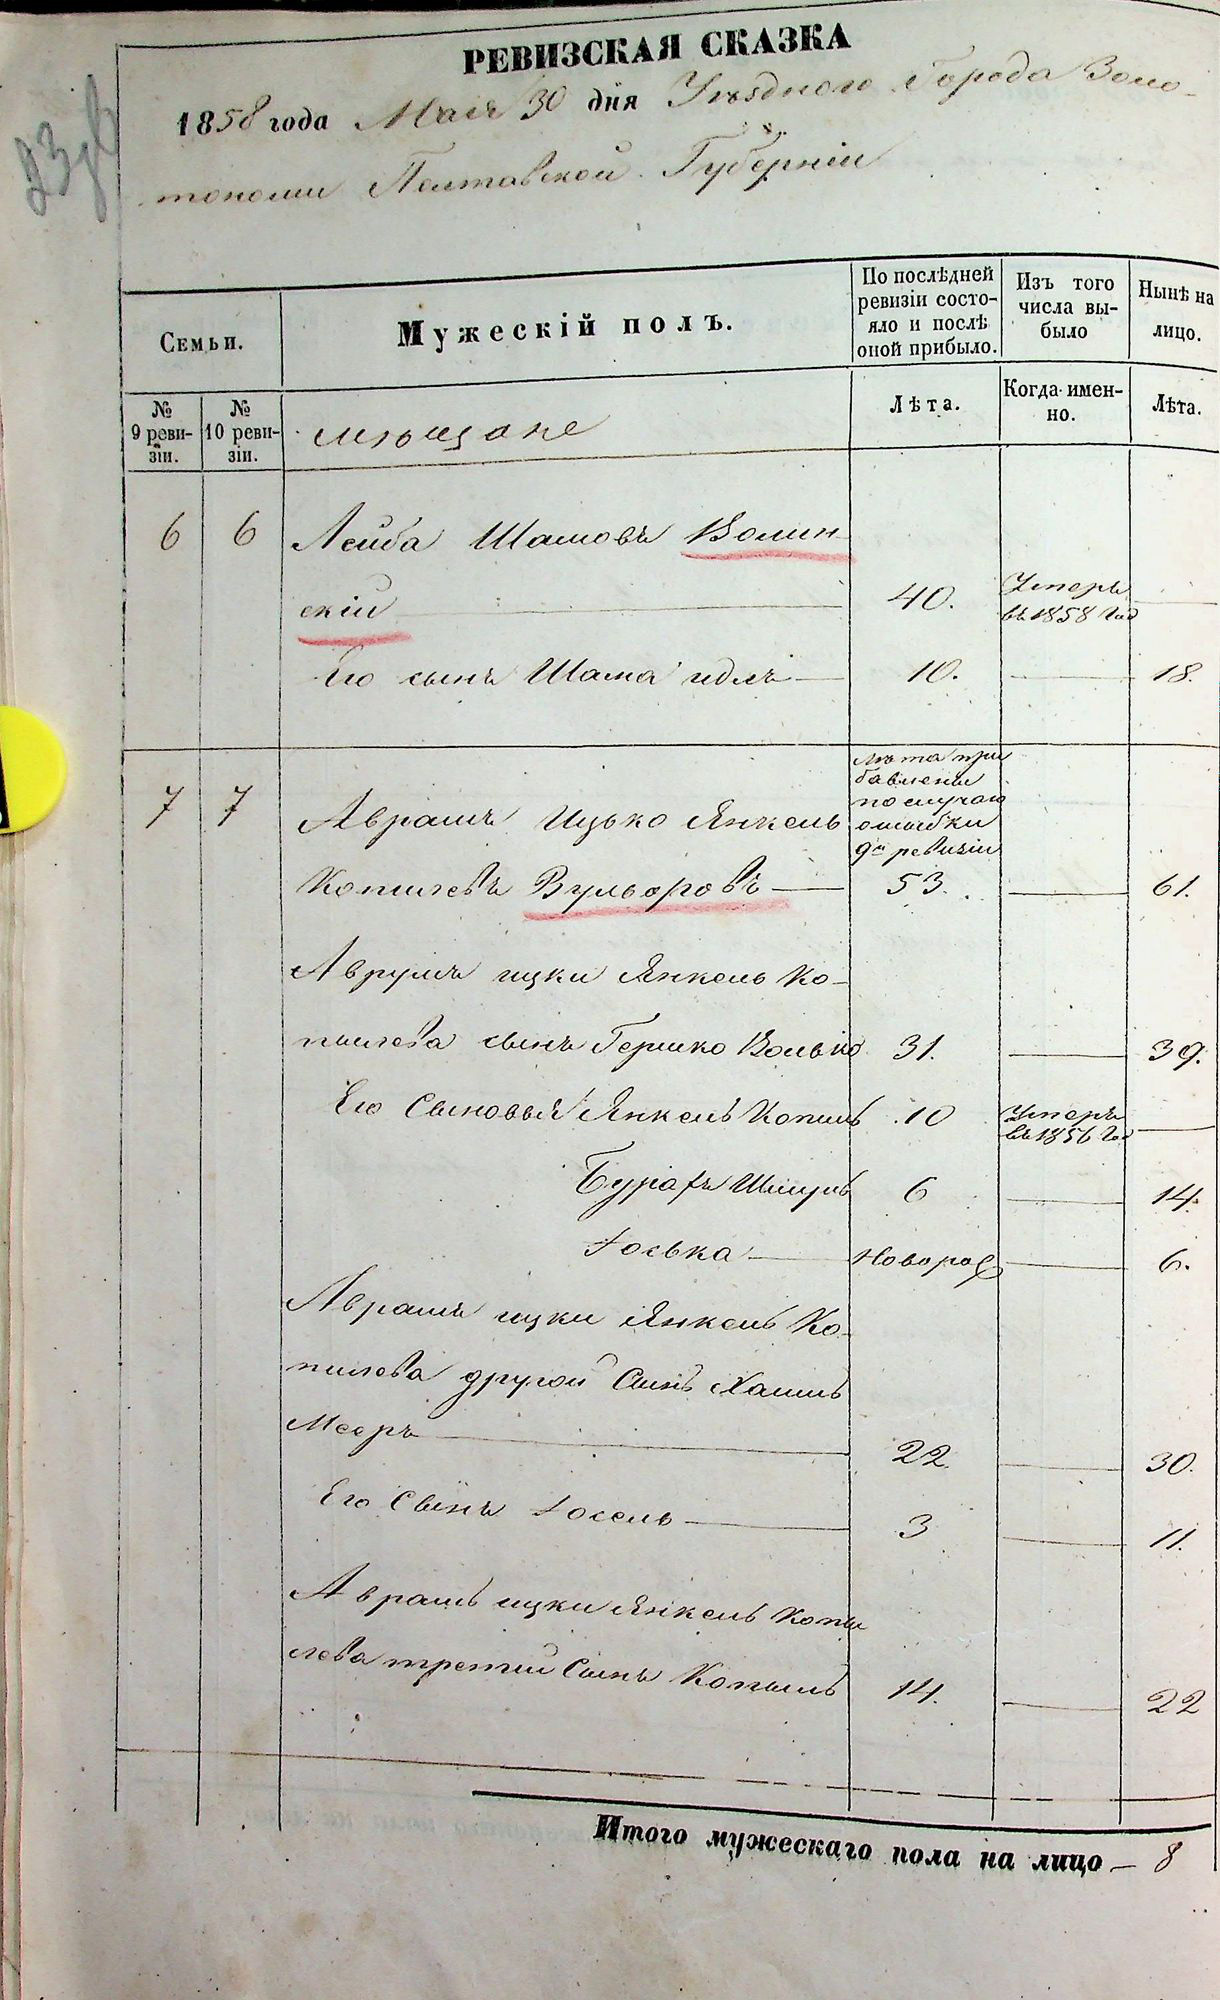 РЕВИЗСКАЯ СКАЗКА
1858 года Мая 30 дня Уѣзднаго Города Золо-
тоноши Полтавской Губерніи
Семьи.
Мужескій полъ.
По послѣдней
ревизіи состо-
яло и послѣ
оной прибыло.
Изъ того
числа вы-
было
Нынѣ на
лицо.
№
9 реви-
зіи.
№
10 реви-
зіи.
мѣщане
Лѣта.
Когда имен-
но.
Лѣта.
6 6 Лейба Шамовъ Волин
скій 40. Умеръ
въ 1858 год
Его сынъ Шама 10. 18.
лѣта при
бавлены
по случаю
ошибки
9й ревизіи
7 7 Аврамъ Ицько Янкель
Копилевъ Вульфровъ 53. 61.
Аврумъ ицки Янкель Ко-
пылева сынъ Гершко Волько 31. 39.
Его Сыновья Янкель Копиль 10 Умеръ
въ 1856 год
Шмуль 6 14.
Іоська Новорож 6.
Аврамъ ицки Янкель Ко-
пилева другой Сынъ Хаимъ
Мееръ 22. 30.
Его Сынъ Іосель 3 11.
Аврамъ ицки Янкель Копы
лева третий Сынъ Копыль 14. 22
Итого мужескаго пола на лицо — 8